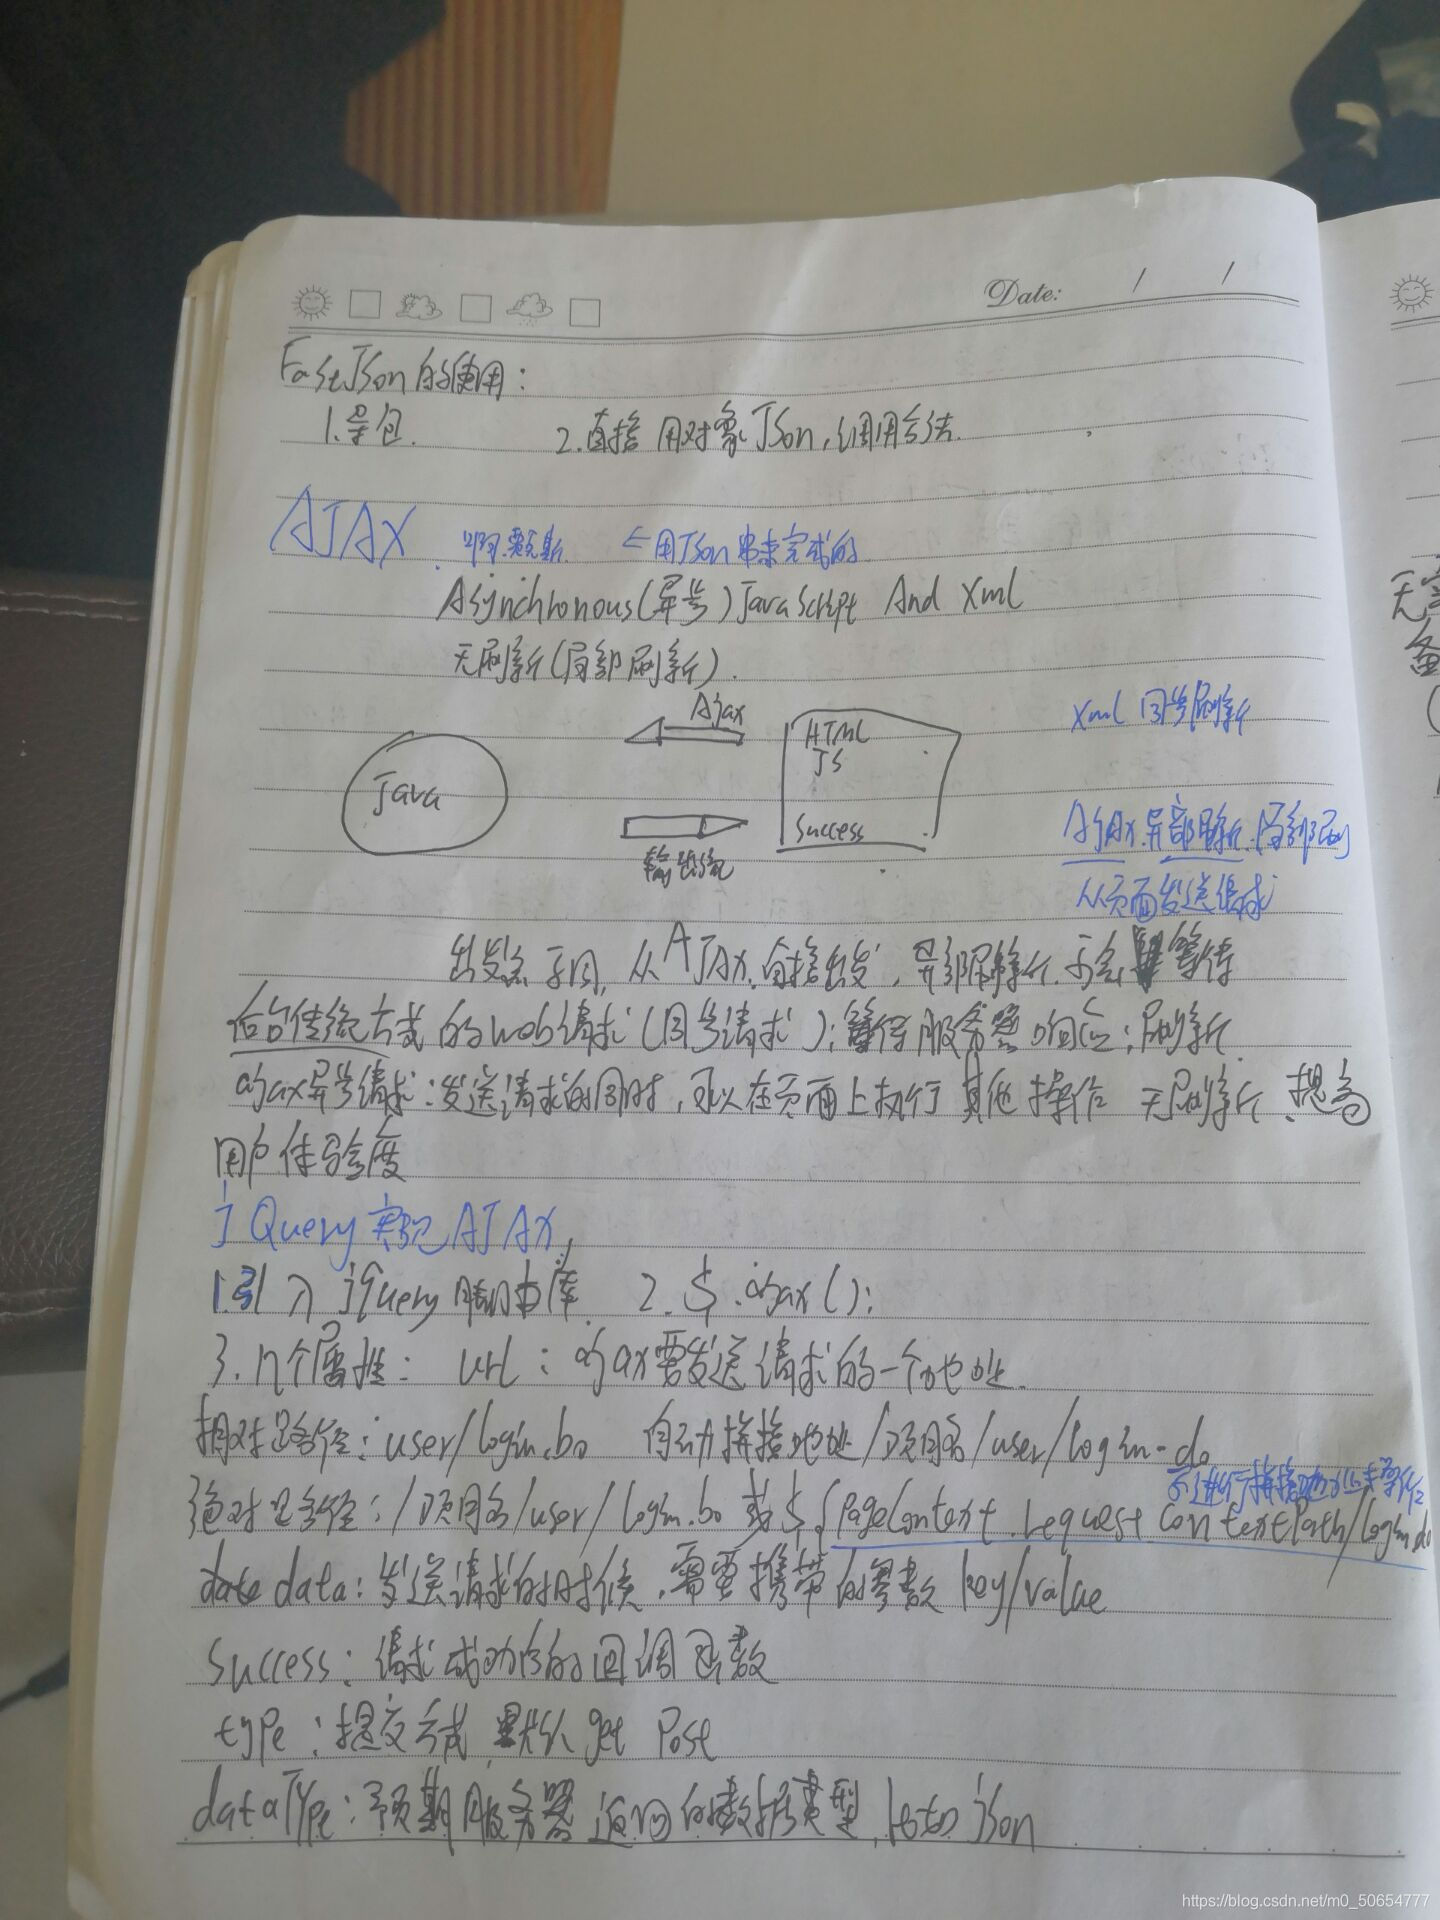 Date: / /
FastJson的使用:
1.导包. 2.直接用对象Json,调用方法.
AJAX. 啊贾克斯 ←用Json串来完成的
Asynchronous(异步)JavaScript And Xml
无刷新(局部刷新).
Ajax
Xml 同步刷新
HTML
JS
Java
Success
输出流
Ajax.异部刷新.局部刷
从页面发送请求
出发点不同,从AJAX.直接出发,异部刷新.不会等待
后台传统方式的web请求(同步请求):等待服务器响应;刷新.
ajax异步请求:发送请求的同时,可以在页面上执行其他操作 无刷新、提高
用户体验度
jQuery实现AJAX
1.引入jQuery 2.$.ajax();
3.几个属性: url:ajax要发送请求的一个地址.
相对路径:user/login.bo 自动拼接地址/项目名/user/login.do
不进行拼接地址
绝对路径:/项目名/user/login.bo 或 ${PageContext.request.contextPath/login.do
date data:发送请求的时候,需要携带的参数 key/value
success:请求成功后的回调函数
type:提交方式 默认 get Post
dataType:预期服务器返回的数据类型, json
无
备
(
https://blog.csdn.net/m0_50654777